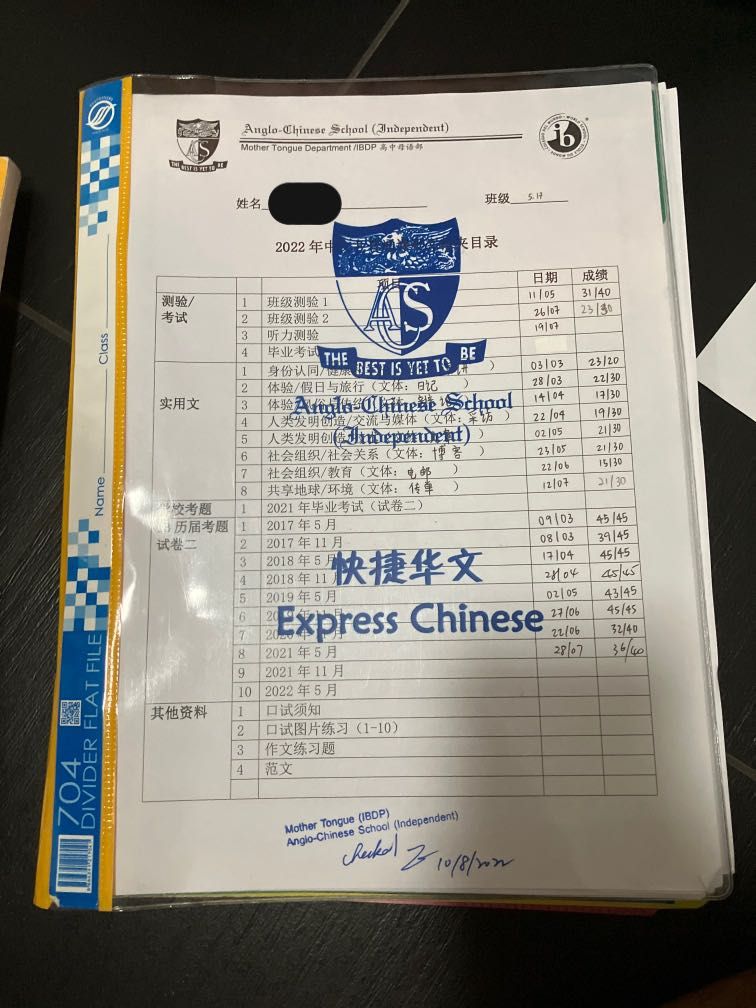 Anglo-Chinese School (Independent)
Mother Tongue Department /IBDP 高中母语部
THE BEST IS YET TO BE
ib
姓名
班级 5.17
2022 年中 夹目录
项目 日期 成绩
测验/考试 1 班级测验 1 11/05 31/40
2 班级测验 2 26/07 23/30
3 听力测验 19/07
4 毕业考试
实用文 1 身份认同/健康 03/03 23/20
2 体验/假日与旅行（文体：日记 ） 28/03 22/30
3 体验 （文体： 14/04 17/30
4 人类发明创造/交流与媒体（文体：采访 ） 22/04 19/30
5 人类发明创造 02/05 21/30
6 社会组织/社会关系（文体：博客 ） 23/05 21/30
7 社会组织/教育（文体：电邮 ） 22/06 15/30
8 共享地球/环境（文体：传单 ） 12/07 21/30
学校考题 1 2021 年毕业考试（试卷二）
历届考题 试卷二 1 2017 年 5 月 09/03 45/45
2 2017 年 11 月 08/03 39/45
3 2018 年 5 月 17/04 45/45
4 2018 年 11 月 28/04 45/45
5 2019 年 5 月 02/05 43/45
6 27/06 45/45
7 22/06 32/40
8 2021 年 5 月 28/07 36/40
9 2021 年 11 月
10 2022 年 5 月
其他资料 1 口试须知
2 口试图片练习（1-10）
3 作文练习题
4 范文
ACS
THE BEST IS YET TO BE
Anglo-Chinese School
(Independent)
快捷华文
Express Chinese
Mother Tongue (IBDP)
Anglo-Chinese School (Independent)
10/8/2022
Name
Class
704
DIVIDER FLAT FILE